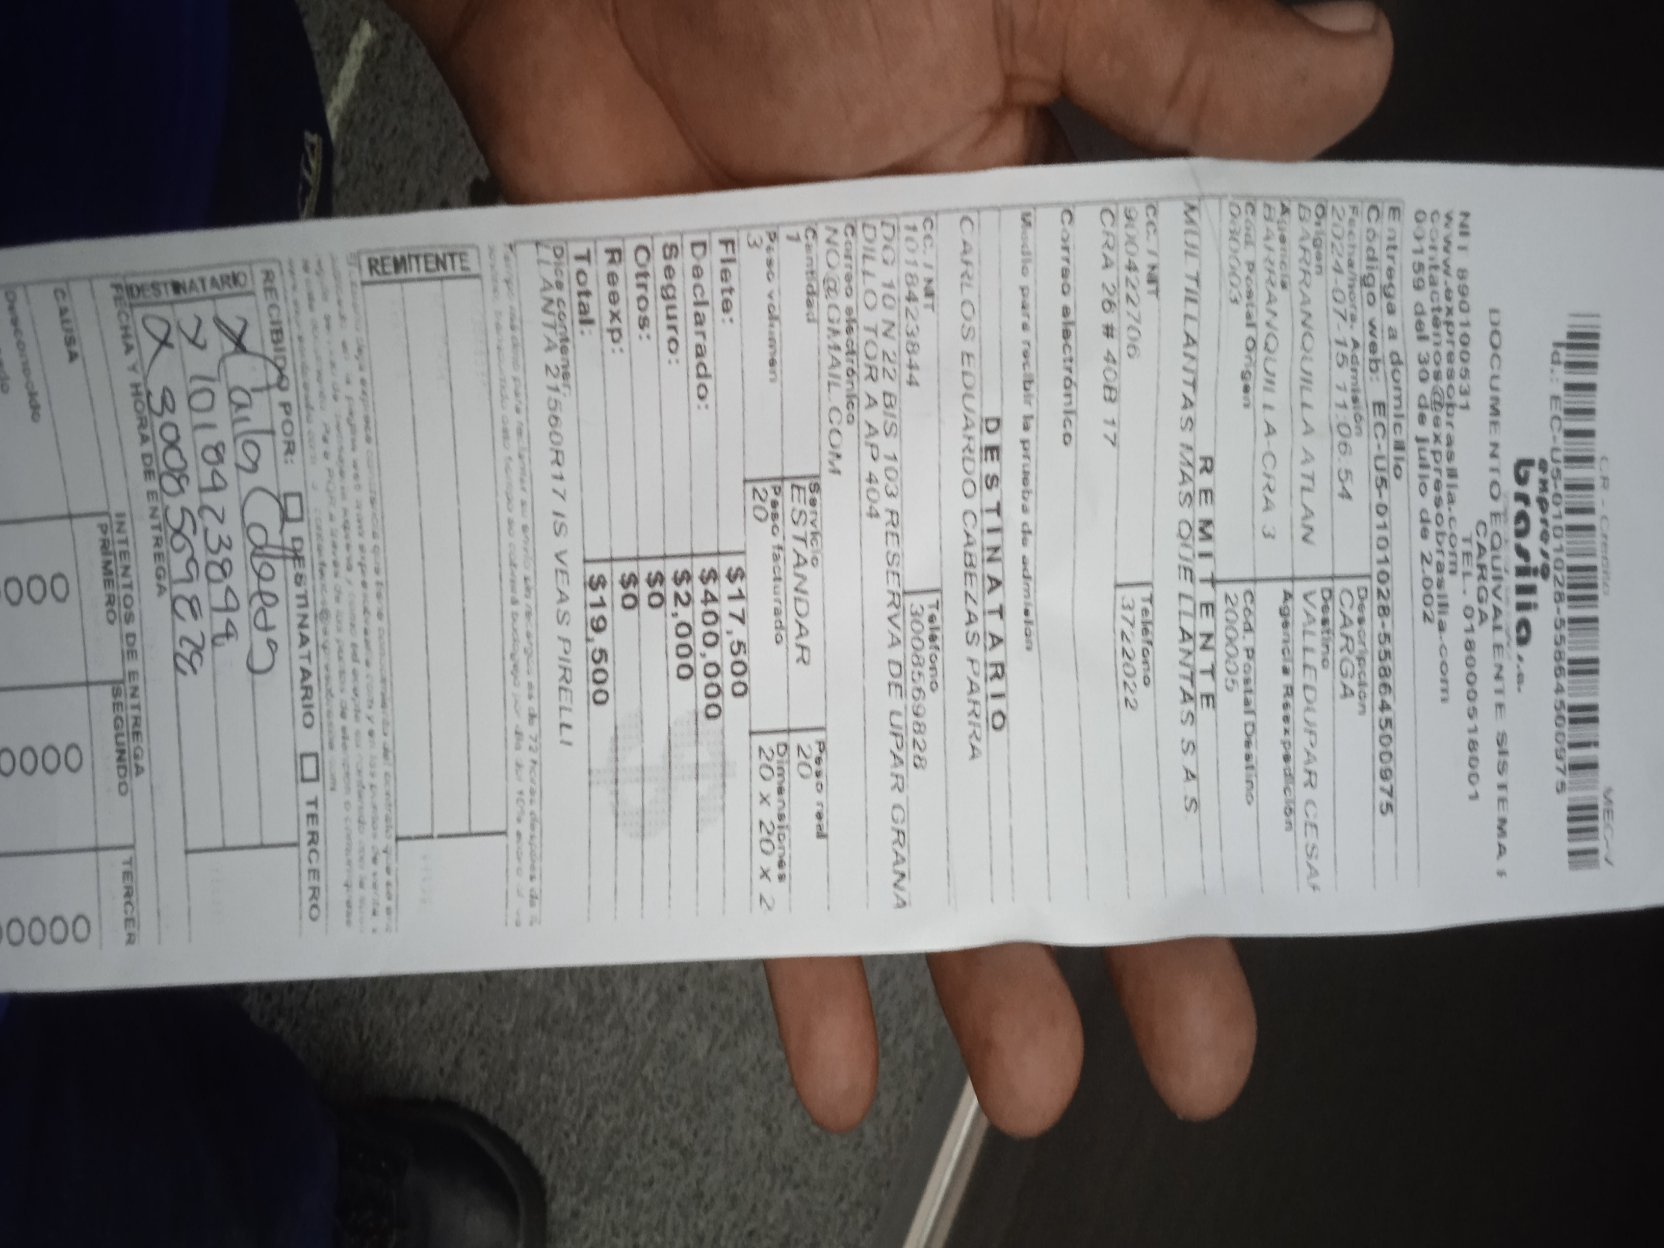 CR - Credito
Id.: EC-U5-0101028-55864500975
expreso
brasilia s.a.
DOCUMENTO EQUIVALENTE SISTEMA
CARGA
NIT 890100531 TEL. 018000518001
www.expresobrasilia.com
contactenos@expresobrasilia.com
00159 del 30 de julio de 2.002
Entrega a domicilio
Código web: EC-U5-0101028-55864500975
Fecha/hora. Admisión Descripción
2024-07-15 11:06:54 CARGA
Origen Destino
BARRANQUILLA ATLAN VALLEDUPAR CESAR
Agencia Agencia Reexpedición
BARRANQUILLA-CRA 3
Cód. Postal Origen Cód. Postal Destino
080003 200005
REMITENTE
MULTILLANTAS MAS QUE LLANTAS S A S
CC. / NIT Teléfono
900422706 3722022
CRA 26 # 40B 17
Correo electrónico
Medio para recibir la prueba de admision
DESTINATARIO
CARLOS EDUARDO CABEZAS PARRA
CC. / NIT Teléfono
1018423844 3008569828
DG 10 N 22 BIS 103 RESERVA DE UPAR GRANA
DILLO TOR A AP 404
Correo electrónico
NO@GMAIL.COM
Cantidad Servicio Peso real
1 ESTÁNDAR 20
Peso volumen Peso facturado Dimensiones
3 20 20 X 20 X 2
Flete: $17,500
Declarado: $400,000
Seguro: $2,000
Otros: $0
Reexp: $0
Total: $19,500
Dice contener
LLANTA 21560R17 IS VEAS PIRELLI
REMITENTE
RECIBIDO POR: DESTINATARIO TERCERO
DESTINATARIO
X
X 1018423844
X 3008569828
FECHA Y HORA DE ENTREGA
INTENTOS DE ENTREGA
CAUSA PRIMERO SEGUNDO TERCER
Desconocido